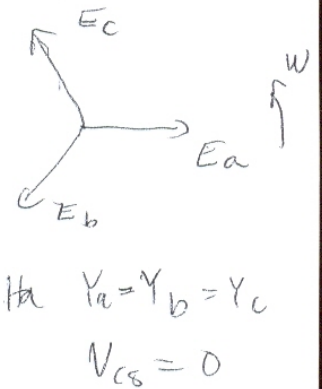 E_c
W
E_a
E_b
Ha Y_a = Y_b = Y_c
V_cs = 0